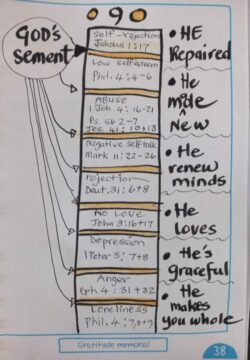 9
GOD'S
Sement
Self-rejection
Jakobus 1:17
Low self esteem
Phil. 4:4-6
ABUSE
1 Joh 4:16-21
Ps. 56 2-7
Jes. 41:10+13
Negative selftalk
Mark 11:22-26
rejection
Deut. 31:6+8
No Love
John 3:16+17
Depression
1 Peter 5:7+8
Anger
Eph 4:31+32
Loneliness
Phil. 4:7,8+9
• HE
Repaired
• He
made
New
• He
renew
minds
• He
Loves
• He's
graceful
• He
makes
you whole
Gratitude memorial
38